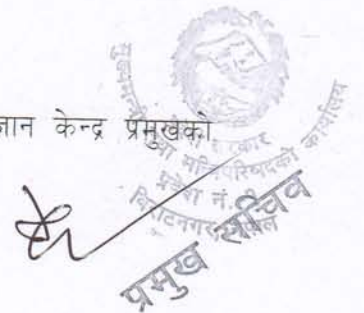 ज्ञान केन्द्र प्रमुखको
सरकार
मन्त्रिपरिषद्को कार्यालय
प्रदेश नं.
विराटनगर, नेपाल
प्रमुख सचिव